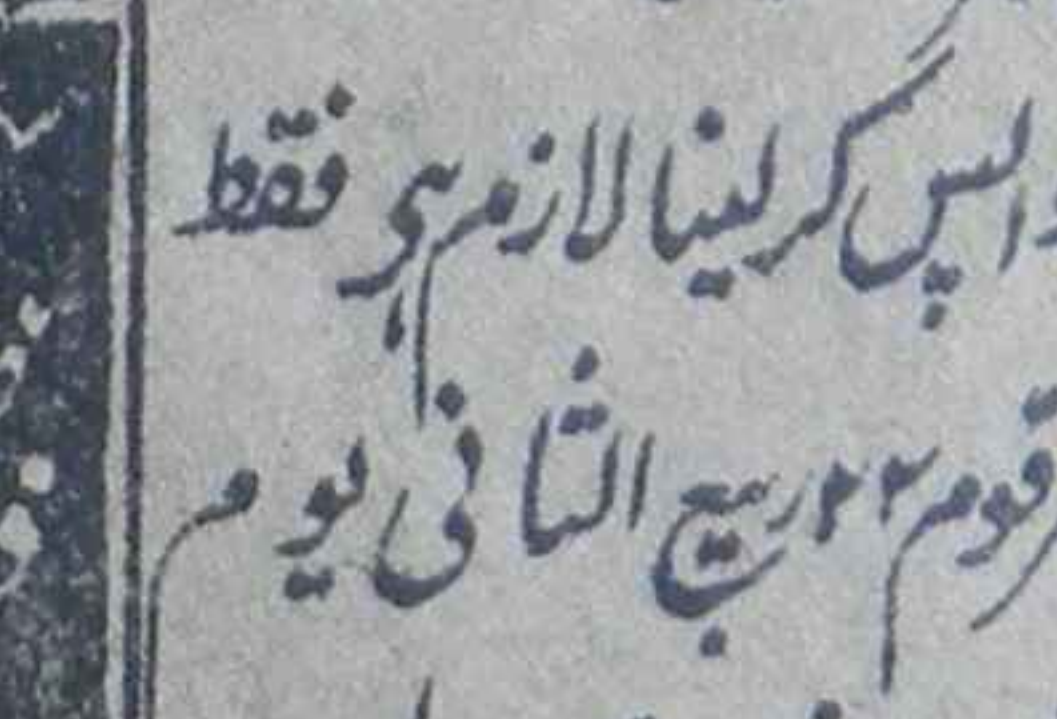 واپس کر لینا لازم ہی فقط
مرقوم ۲۲ ربیع الثانی یوم